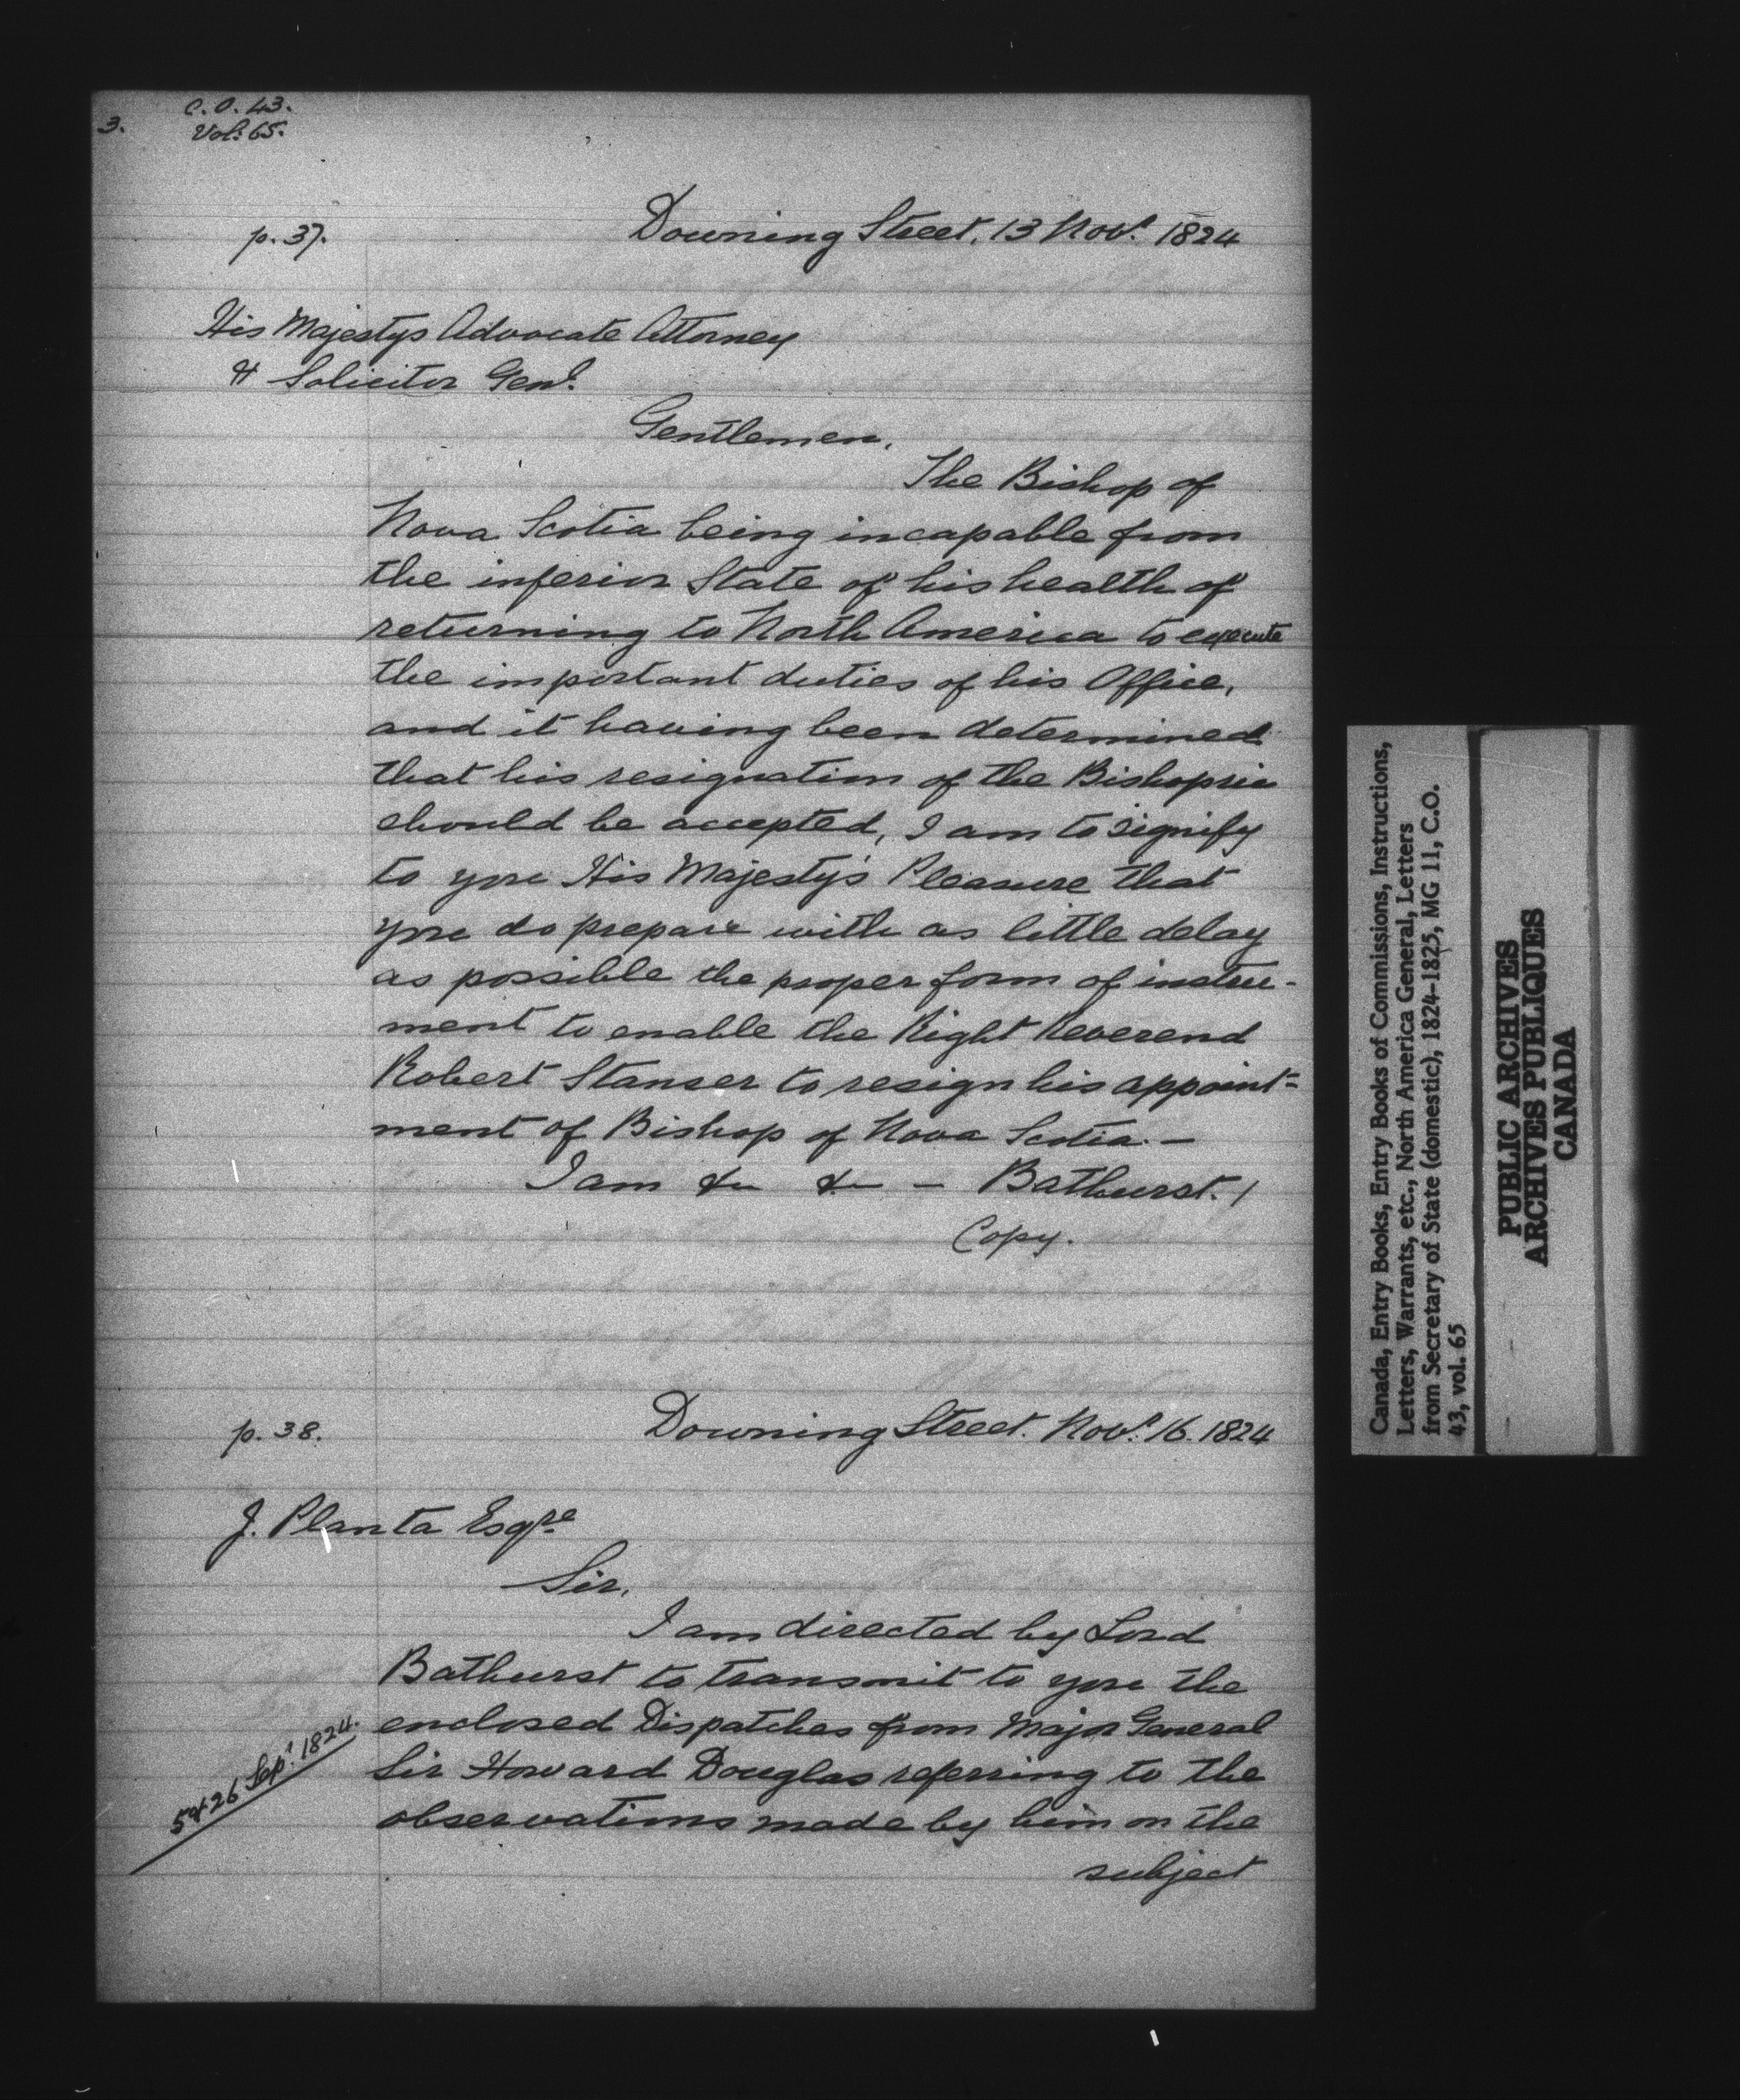 3.
C.O. 43.
Vol: 65.
p. 37.
Downing Street, 13 Novr. 1824
His Majestys Advocate Attorney
& Solicitor Genl.
Gentlemen,
The Bishop of
Nova Scotia being incapable from
the inferior State of his health of
returning to North America to execute
the important duties of his Office,
and it having been determined
that his resignation of the Bishopric
should be accepted, I am to signify
to you His Majesty's Pleasure that
you do prepare with as little delay
as possible the proper form of instru-
ment to enable the Right Reverend
Robert Stanser to resign his appoint=
ment of Bishop of Nova Scotia. —
I am &c &c — Bathurst. /
Copy.
p. 38.
Downing Street. Novr. 16. 1824
J. Planta Esqre
Sir,
I am directed by Lord
Bathurst to transmit to you the
enclosed Dispatches from Major General
Sir Howard Douglas referring to the
observations made by him on the
subject
5 & 26 Sepr. 1824.
Canada, Entry Books, Entry Books of Commissions, Instructions,
Letters, Warrants, etc., North America General, Letters
from Secretary of State (domestic), 1824-1825, MG 11, C.O.
43, vol. 65
PUBLIC ARCHIVES
ARCHIVES PUBLIQUES
CANADA